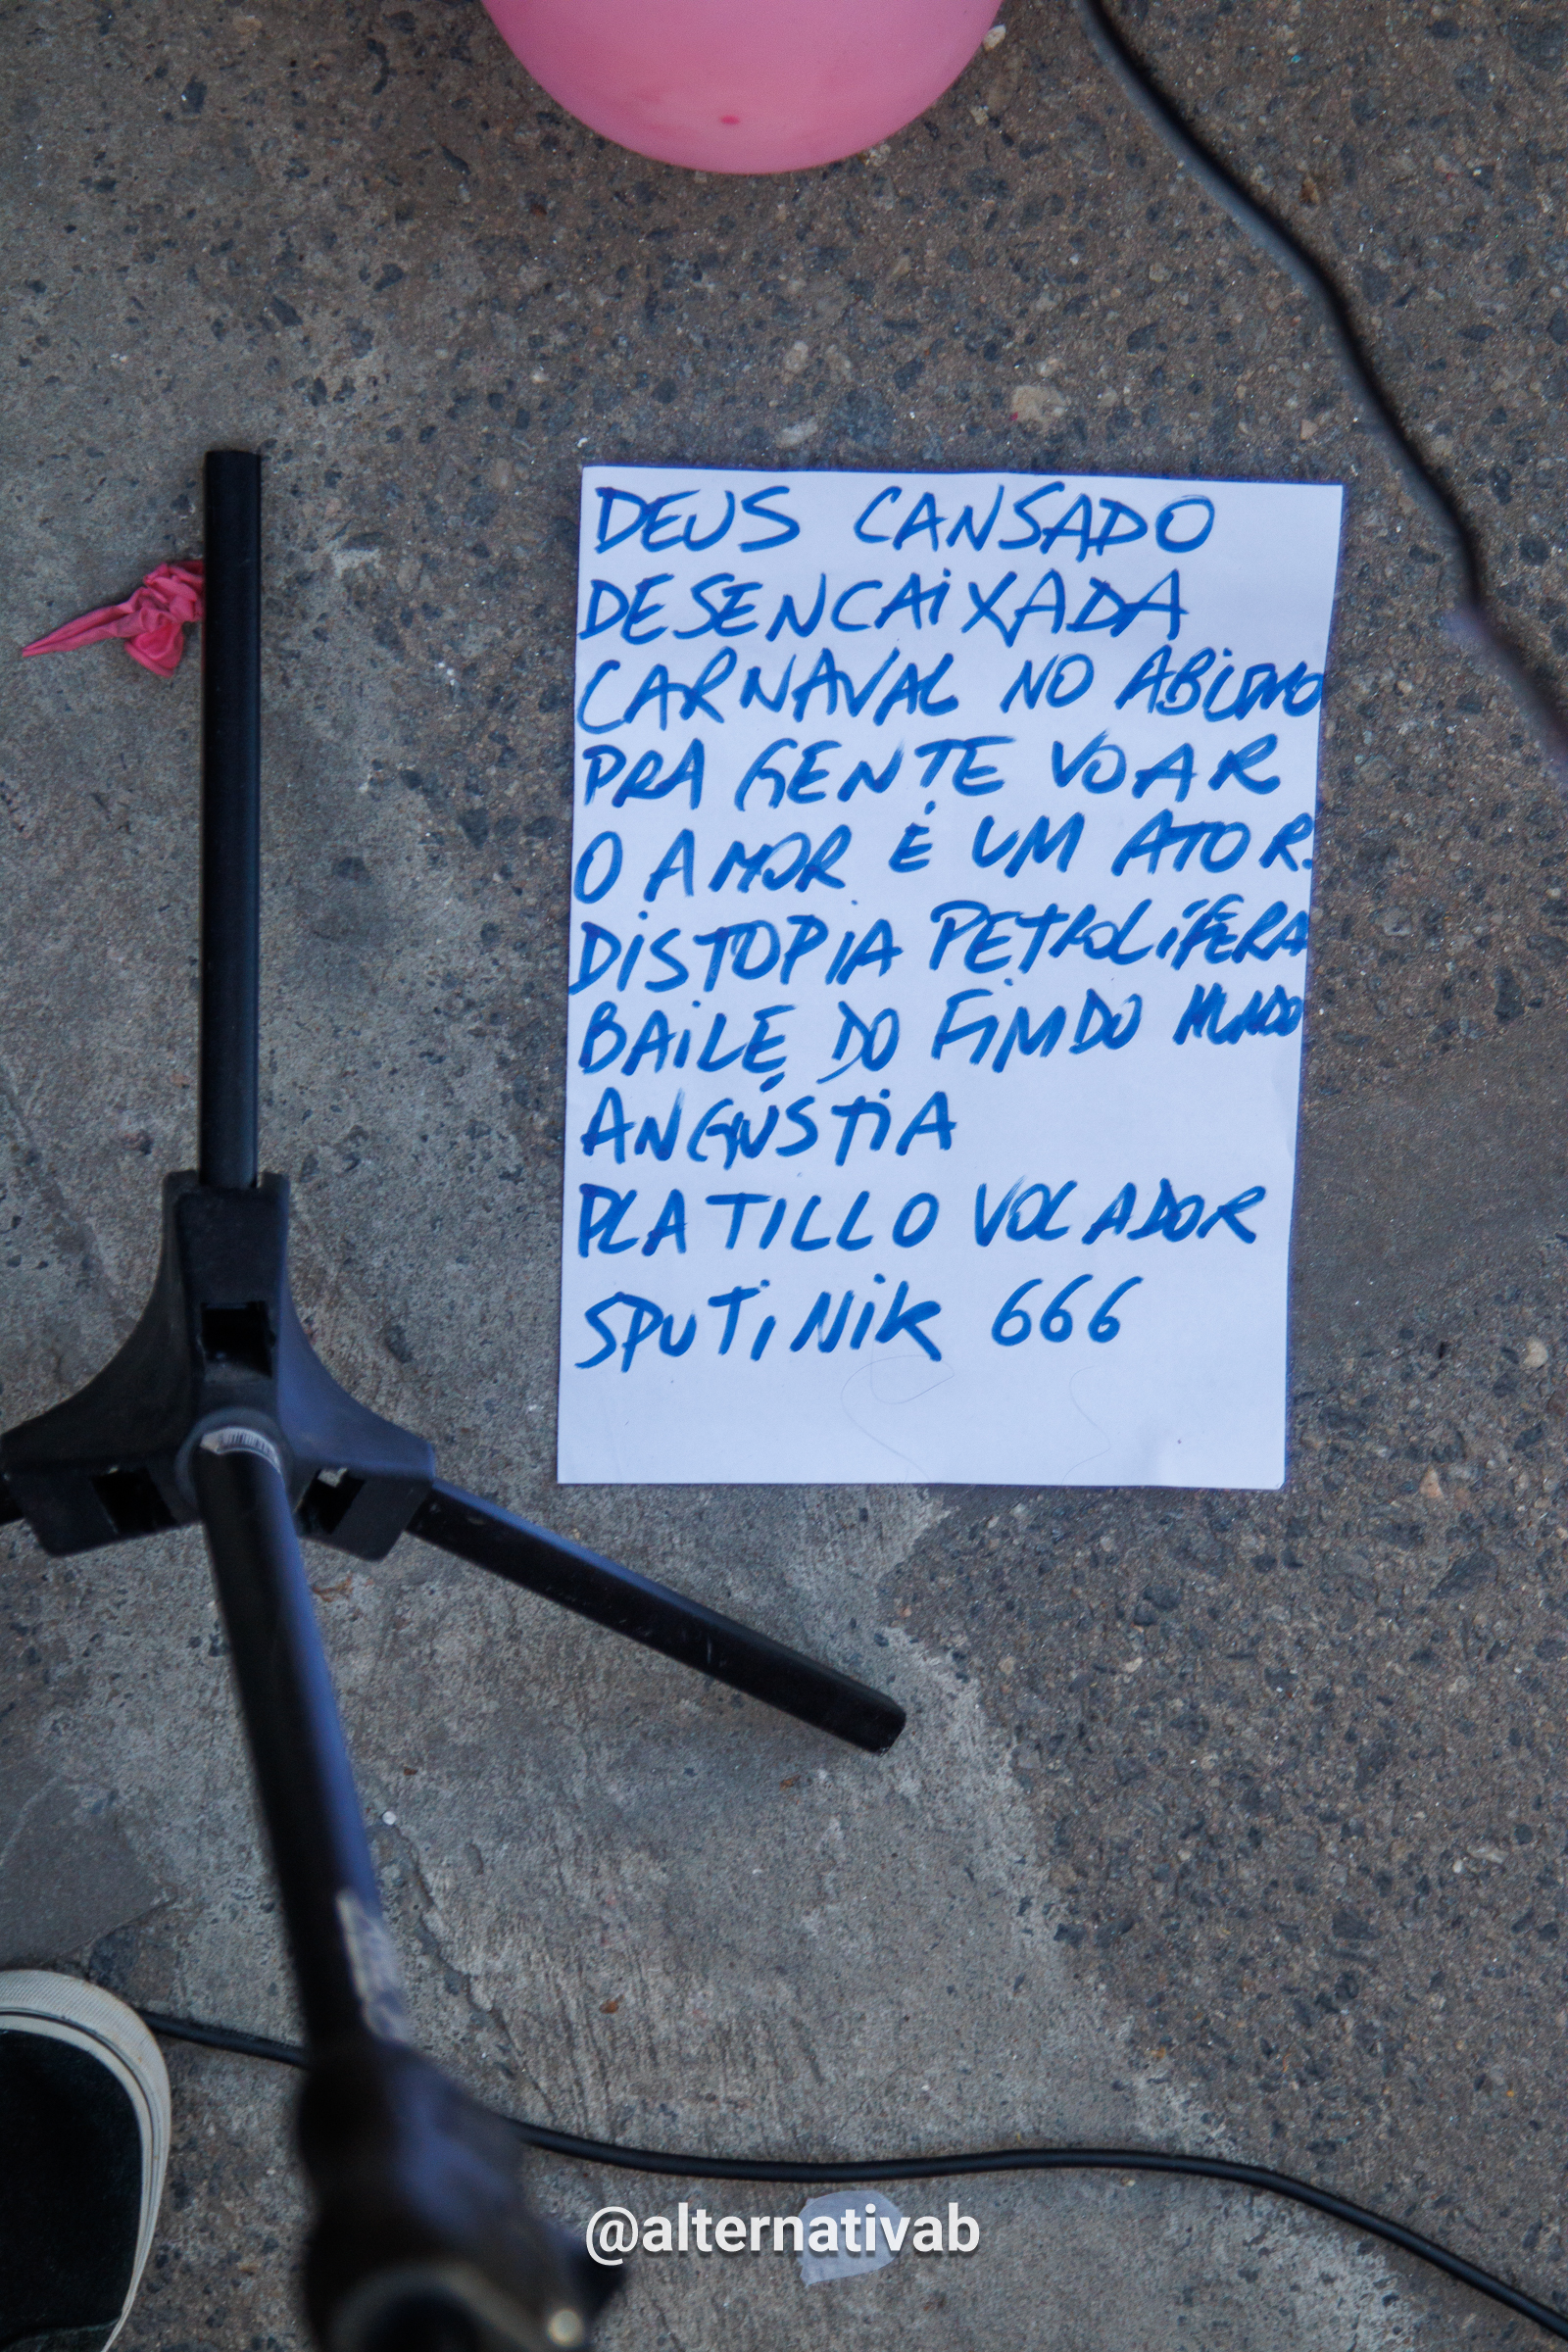 DEUS CANSADO
DESENCAIXADA
CARNAVAL NO ABISMO
PRA GENTE VOAR
O AMOR É UM ATO R.
DISTOPIA PETROLÍFERA
BAILE DO FIM DO MUNDO
ANGÚSTIA
PLATILLO VOLADOR
SPUTINIK 666
@alternativab